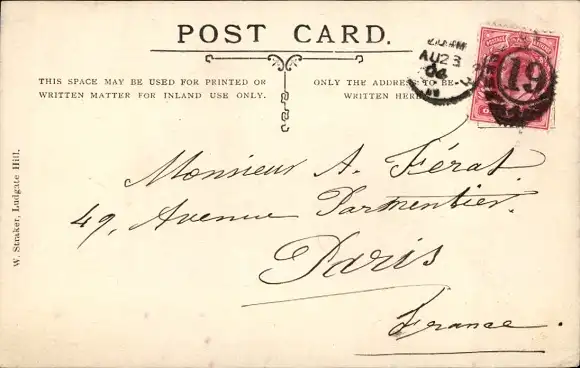 POST CARD.
THIS SPACE MAY BE USED FOR PRINTED OR
WRITTEN MATTER FOR INLAND USE ONLY.
ONLY THE ADDRESS TO BE
WRITTEN HERE
AU 23
04
19
Monsieur A. Férat.
49, Avenue Parmentier.
Paris
France.
W. Straker, Ludgate Hill.